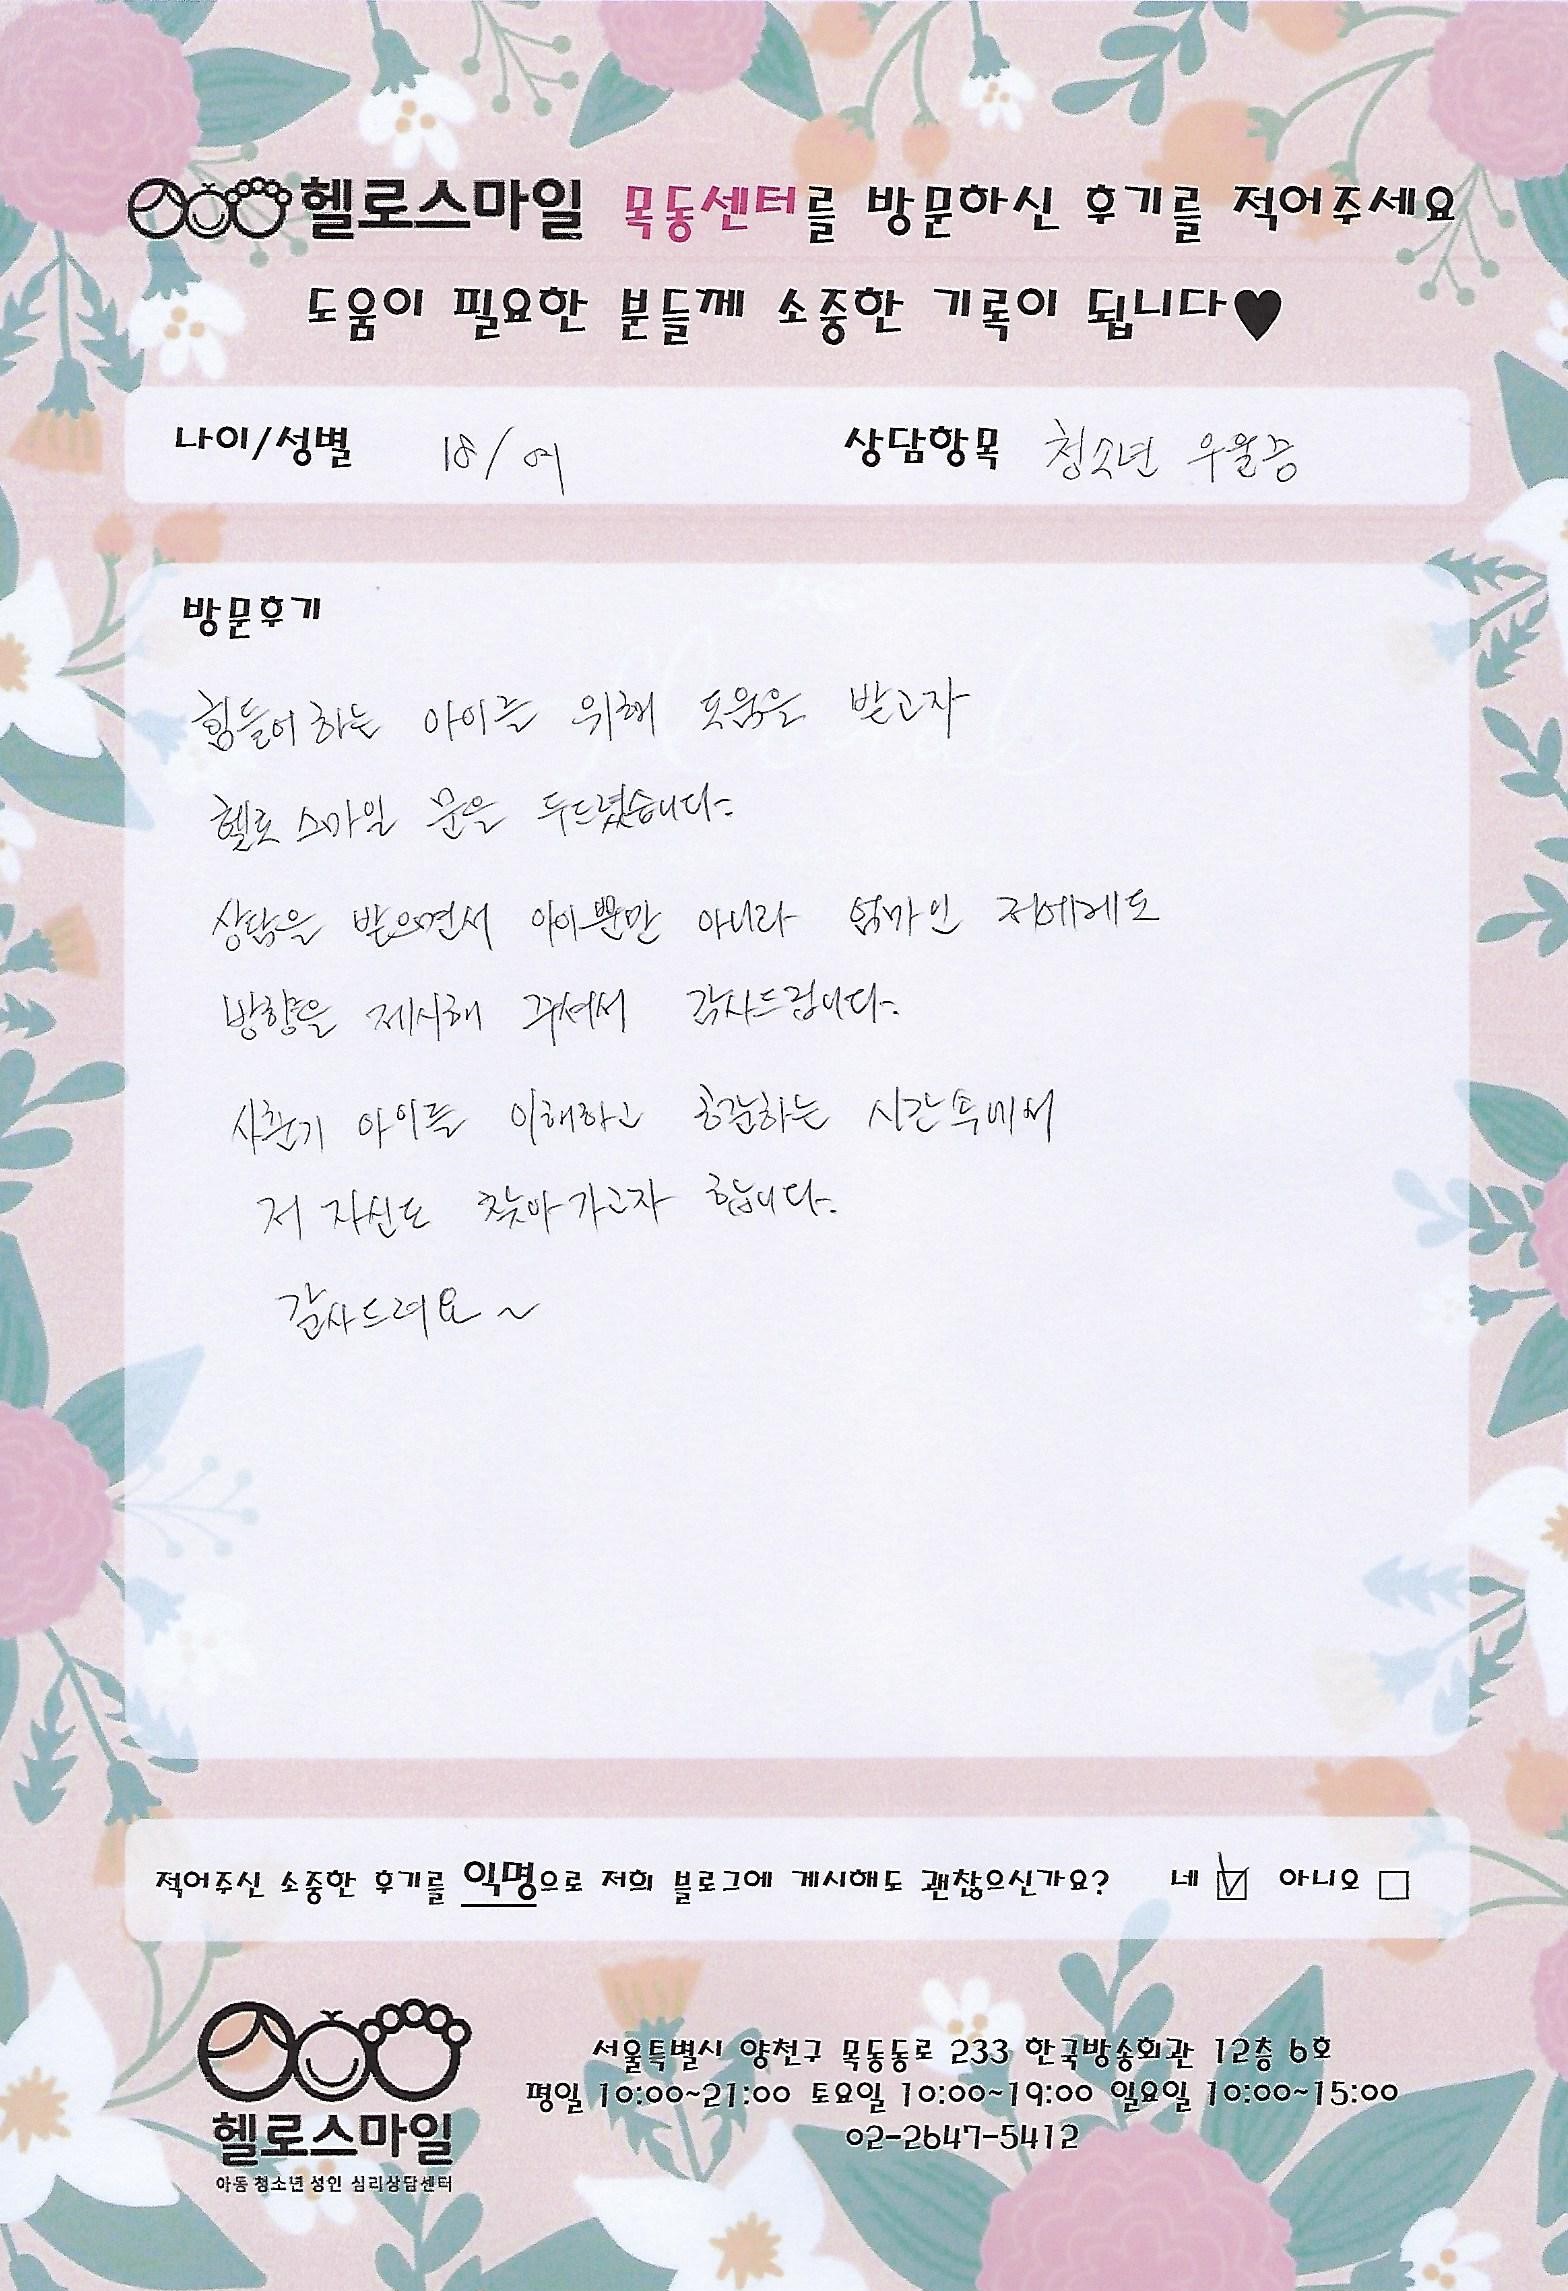 헬로스마일 목동센터를 방문하신 후기를 적어주세요
도움이 필요한 분들께 소중한 기록이 됩니다♥
나이/성별 18/여 상담항목 청소년 우울증
방문후기
힘들어하는 아이를 위해 도움을 받고자
헬로스마일 문을 두드렸습니다.
상담을 받으면서 아이뿐만 아니라 엄마인 저에게도
방향을 제시해 주셔서 감사드립니다.
사춘기 아이를 이해하고 공감하는 시간속에서
저 자신도 찾아가고자 합니다.
감사드려요~
적어주신 소중한 후기를 익명으로 저희 블로그에 게시해도 괜찮으신가요? 네 ☑ 아니오 □
서울특별시 양천구 목동동로 233 한국방송회관 12층 6호
평일 10:00~21:00 토요일 10:00~19:00 일요일 10:00~15:00
02-2647-5412
헬로스마일
아동 청소년 성인 심리상담센터